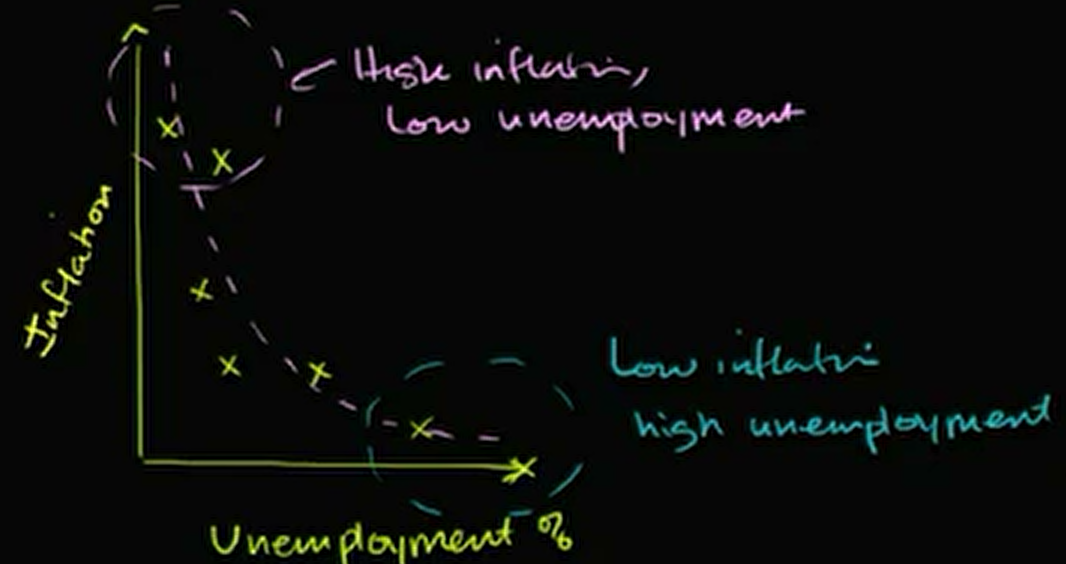 High inflation,
Low unemployment
Inflation
Low inflation
high unemployment
Unemployment %